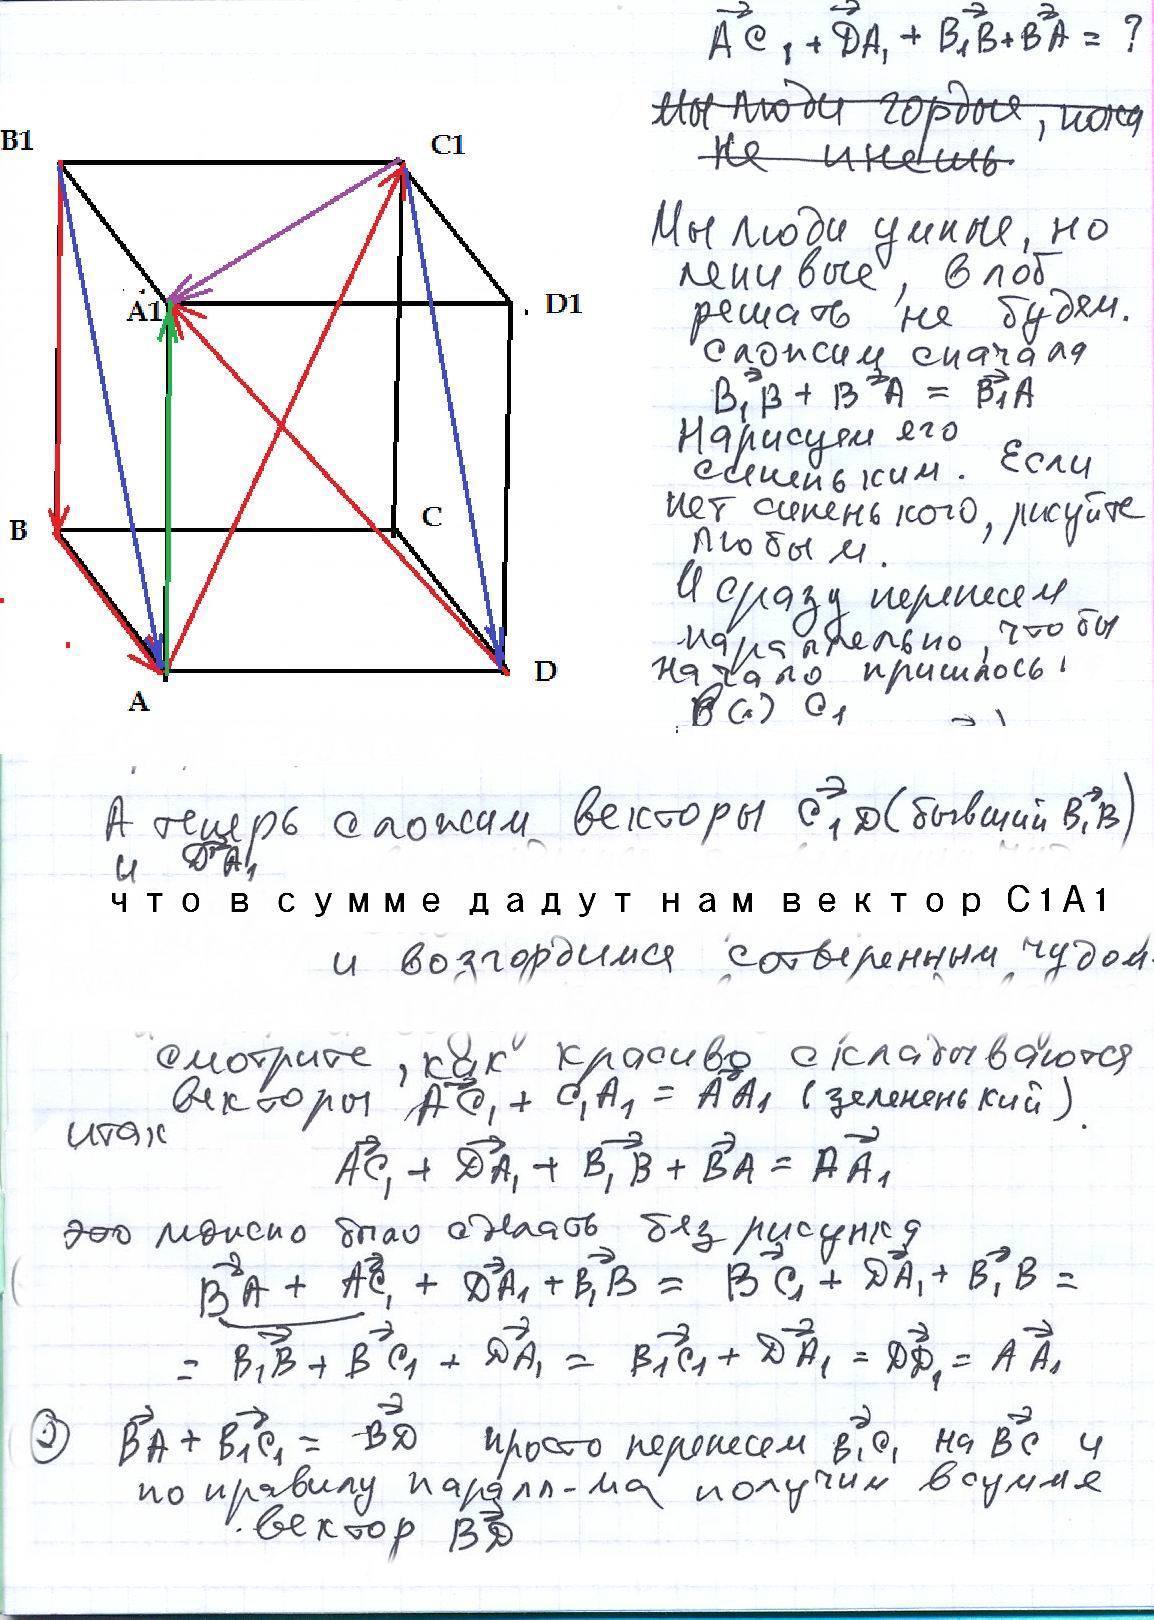 AC₁ + DA₁ + B₁B + BA = ?
мы люди гордые, пока
не
Мы люди умные, но
ленивые, в лоб
решать не будем.
Сложим сначала
B₁B + BA = B₁A
Нарисуем его
синеньким. Если
нет синенького, рисуйте
любым.
И сразу перенесем
параллельно, чтобы
начало пришлось
в (·) C₁
B1
C1
A1
D1
B
C
A
D
А теперь сложим векторы C₁D (бывший B₁B)
и DA₁
что в сумме дадут нам вектор C1A1
и возгордимся сотворенным чудом.
смотрите, как красиво складываются
векторы AC₁ + C₁A₁ = AA₁ (зелененький).
итак
AC₁ + DA₁ + B₁B + BA = AA₁
это можно было сделать без рисунка
BA + AC₁ + DA₁ + B₁B = BC₁ + DA₁ + B₁B =
= B₁B + BC₁ + DA₁ = B₁C₁ + DA₁ = DD₁ = AA₁
2 BA + B₁C₁ = BD просто перенесем B₁C₁ на BC и
по правилу паралл-ма получим в сумме
вектор BD